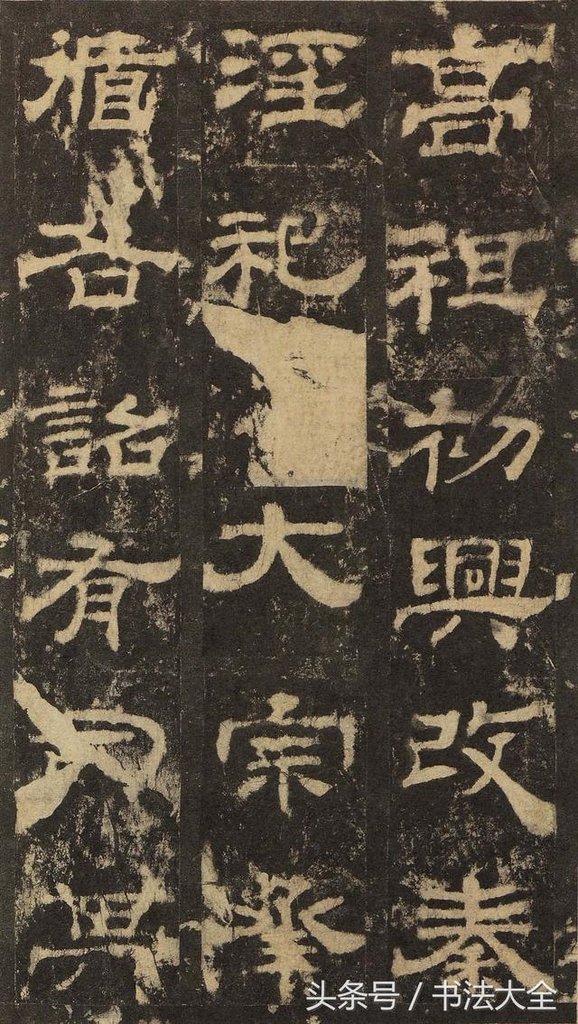 高祖初興改秦
淫祀大宗承
循各詔有司其
头条号 / 书法大全